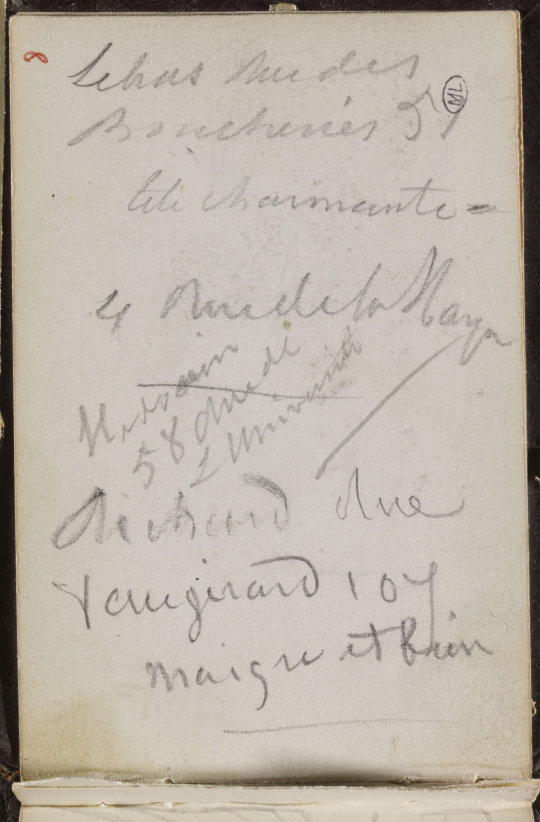 8
Lebas Rue des
Boucheries 51
ML
tête charmante =
4 Rue de la Harpe
58 Rue de
L'Université
Richard Rue
Vaugirard 107
maigre et bien